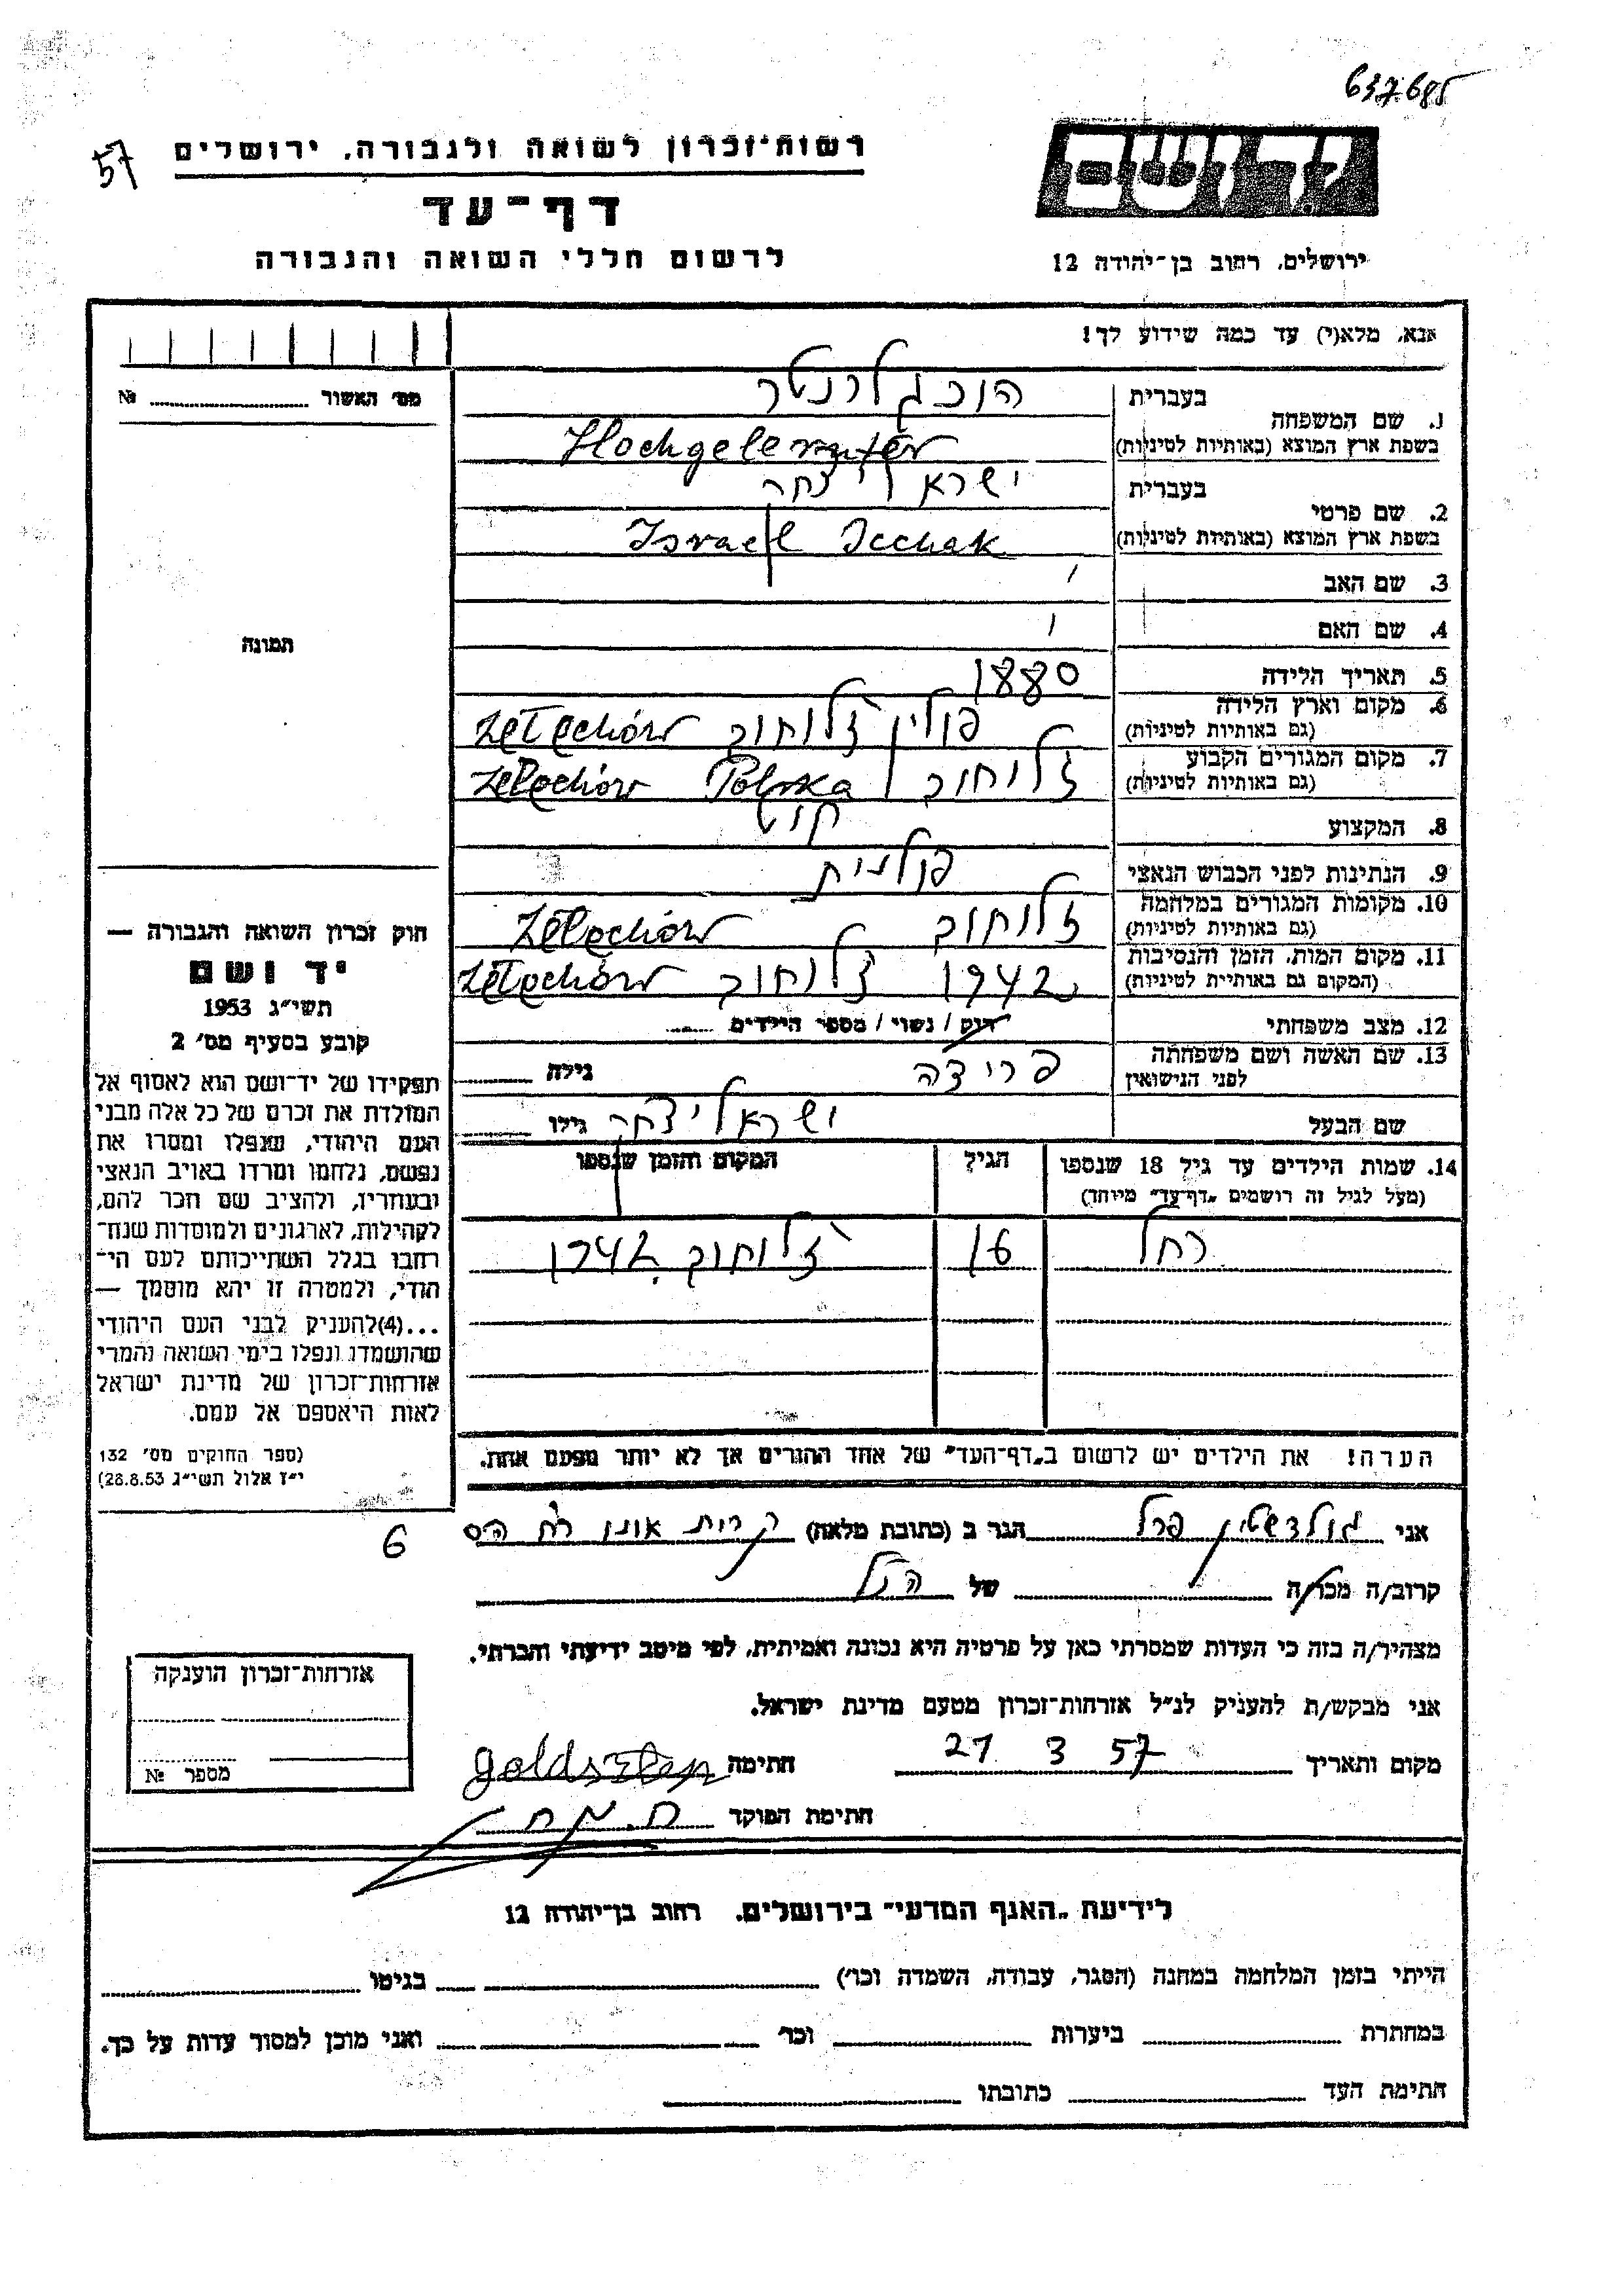 637685
57
רשות־זכרון לשואה ולגבורה, ירושלים
דף־עד
לרשום חללי השואה והגבורה
ירושלים, רחוב בן־יהודה 12
אנא, מלא(י) עד כמה שידוע לך!
מס׳ האשור № 
1. שם המשפחה
בעברית הוכגלרנטר
בשפת ארץ המוצא (באותיות לטיניות) Hochgelernter
2. שם פרטי
בעברית ישראל יצחק
בשפת ארץ המוצא (באותיות לטיניות) Israel Icchak
3. שם האב
4. שם האם
תמונה
5. תאריך הלידה 1880
6. מקום וארץ הלידה פולין ז'לוחוב Żelechów
(גם באותיות לטיניות)
7. מקום המגורים הקבוע ז'לוחוב Polska Żelechów
(גם באותיות לטיניות)
8. המקצוע
9. הנתינות לפני הכבוש הנאצי פולנית
10. מקומות המגורים במלחמה ז'לוחוב Żelechów
(גם באותיות לטיניות)
11. מקום המות, הזמן והנסיבות 1942 ז'לוחוב Żelechów
(המקום גם באותיות לטיניות)
12. מצב משפחתי רווק / נשוי / מספר הילדים
13. שם האשה ושם משפחתה
לפני הנישואין פרידה גילה
שם הבעל ישראל יצחק גילו
14. שמות הילדים עד גיל 18 שנספו הגיל המקום והזמן שנספו
(מעל לגיל זה רושמים „דף־עד״ מיוחד)
רחל 16 ז'לוחוב 1942
הערה! את הילדים יש לרשום ב„דף־העד״ של אחד ההורים אך לא יותר מפעם אחת.
חוק זכרון השואה והגבורה —
יד ושם
תשי״ג 1953
קובע בסעיף מס׳ 2
תפקידו של יד־ושם הוא לאסוף אל
המולדת את זכרם של כל אלה מבני
העם היהודי, שנפלו ומסרו את
נפשם, נלחמו ומרדו באויב הנאצי
ובעוזריו, ולהציב שם וזכר להם,
לקהילות, לארגונים ולמוסדות שנח־
רחבו בגלל השתייכותם לעם הי־
הודי, ולמטרה זו יהא מוסמך —
...(4)להעניק לבני העם היהודי
שהושמדו ונפלו בימי השואה והמרי
אזרחות־זכרון של מדינת ישראל
לאות היאספם אל עמם.
(ספר החוקים מס׳ 132
י״ז אלול תשי״ג 28.8.53)
אני גולדשטין פרל הגר ב (כתובת מלאה) קרית אונו רח הס 6
קרוב/ה מכר/ה של הנל
מצהיר/ה בזה כי העדות שמסרתי כאן על פרטיה היא נכונה ואמיתית, לפי מיטב ידיעתי והכרתי.
אני מבקש/ת להעניק לנ״ל אזרחות־זכרון מטעם מדינת ישראל.
מקום ותאריך 21 3 57 חתימה
חתימת הפוקד
אזרחות־זכרון הוענקה
מספר №
לידיעת „האגף המדעי״ בירושלים, רחוב בן־יהודה 12
הייתי בזמן המלחמה במחנה (הסגר, עבודה, השמדה וכו׳) בגיטו
במחתרת ביערות וכו׳ ואני מוכן למסור עדות על כך.
חתימת העד כתובתו